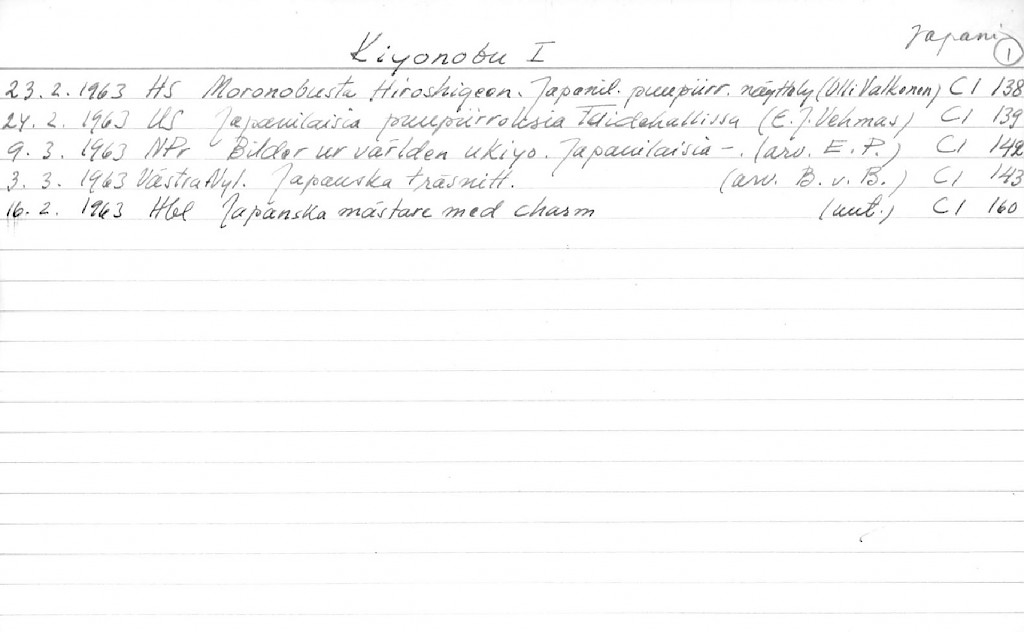 Japani 1
Kiyonobu I
23.2.1963 HS Moronobusta Hiroshigeen. Japanil. puupiirr. näyttely (Olli Valkonen) CI 138
24.2.1963 US Japanilaisia puupiirroksia Taidehallissa (E.J. Vehmas) CI 139
9.3.1963 NPr Bilder ur världen ukiyo. Japanilaisia -. (arv. E.P.) CI 142
3.3.1963 Västra Nyl. Japanska träsnitt. (arv. B.v.B.) CI 143
16.2.1963 Hbl Japanska mästare med charm (uut.) CI 160